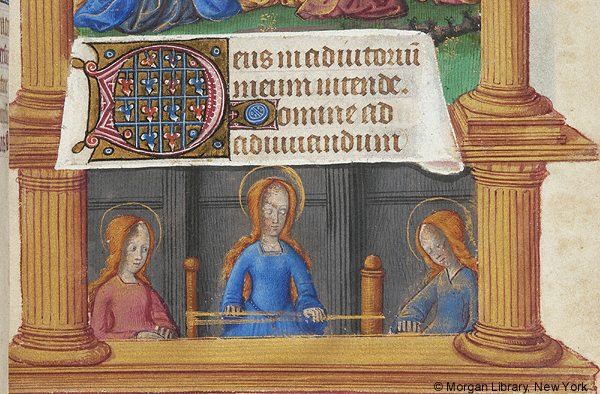 Deus in adiutoriū
meum intende.
Domine ad
adiuuandum
© Morgan Library, New York